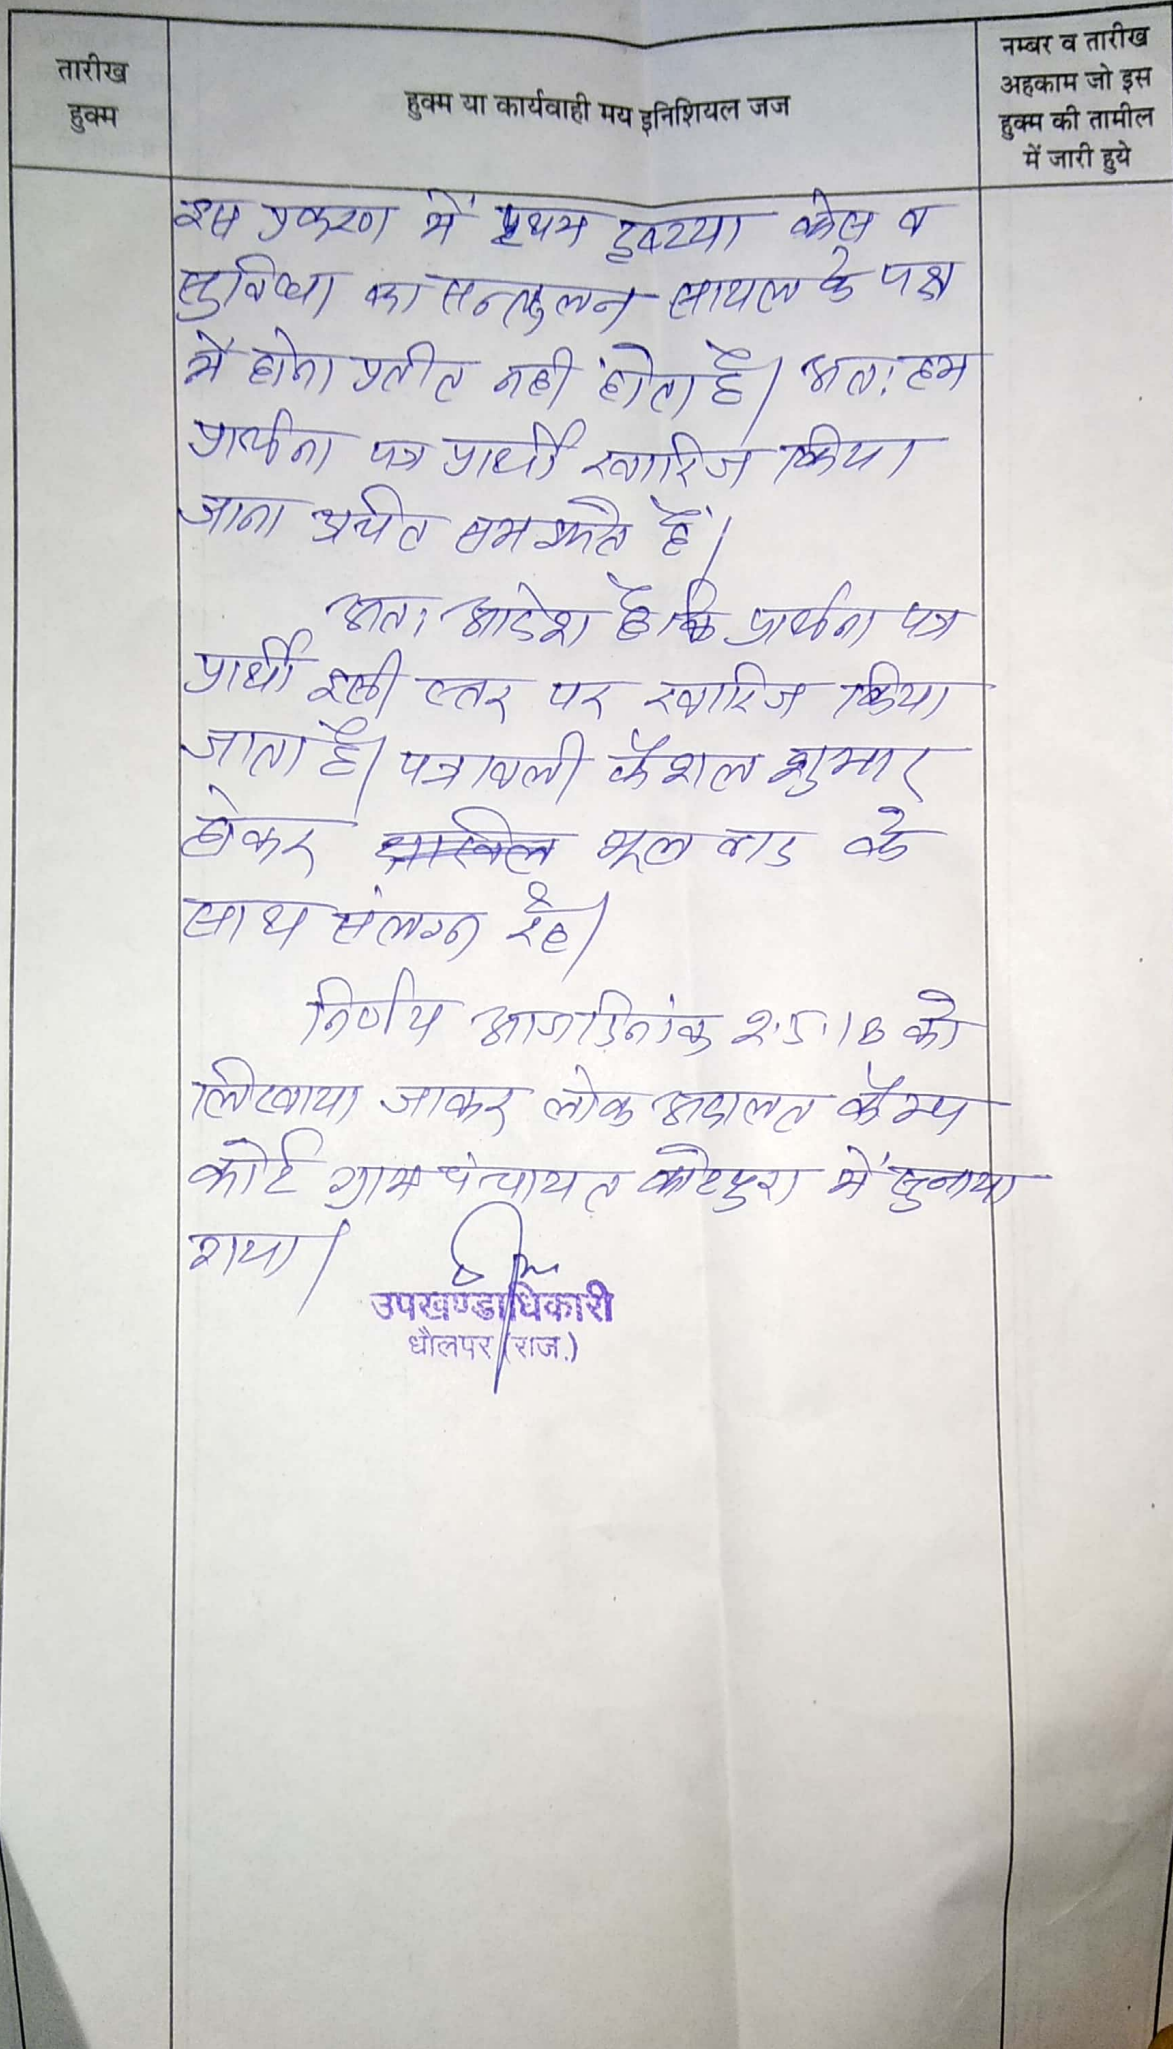 तारीख
हुक्म
हुक्म या कार्यवाही मय इनिशियल जज
नम्बर व तारीख
अहकाम जो इस
हुक्म की तामील
में जारी हुये
इस प्रकरण में प्रथम दृष्टया केस व
सुविधा का सन्तुलन सायल के पक्ष
में होना प्रतीत नहीं होता है। अतः हम
प्रार्थना पत्र प्रार्थी खारिज किया
जाना उचित समझते हैं।
अतः आदेश है कि प्रार्थना पत्र
प्रार्थी इसी स्तर पर खारिज किया
जाता है। पत्रावली फैशल शुमार
होकर मूल वाद के
साथ संलग्न रहे।
निर्णय आज दिनांक 2.5.18 को
लिखाया जाकर लोक अदालत कैम्प
कोर्ट ग्राम पंचायत में सुनाया
गया।
उपखण्डाधिकारी
धौलपुर (राज.)